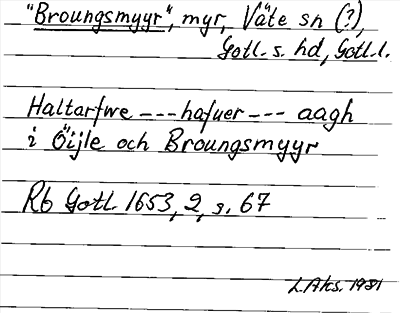 "Broungsmyyr", myr, Väte sn (?),
Gotl. s. hd, Gotl. l.
Haltarfwe --- hafuer --- aagh
i Öijle och Broungsmyyr
Rb Gotl. 1653, 2, s. 67
L. Aks. 1981